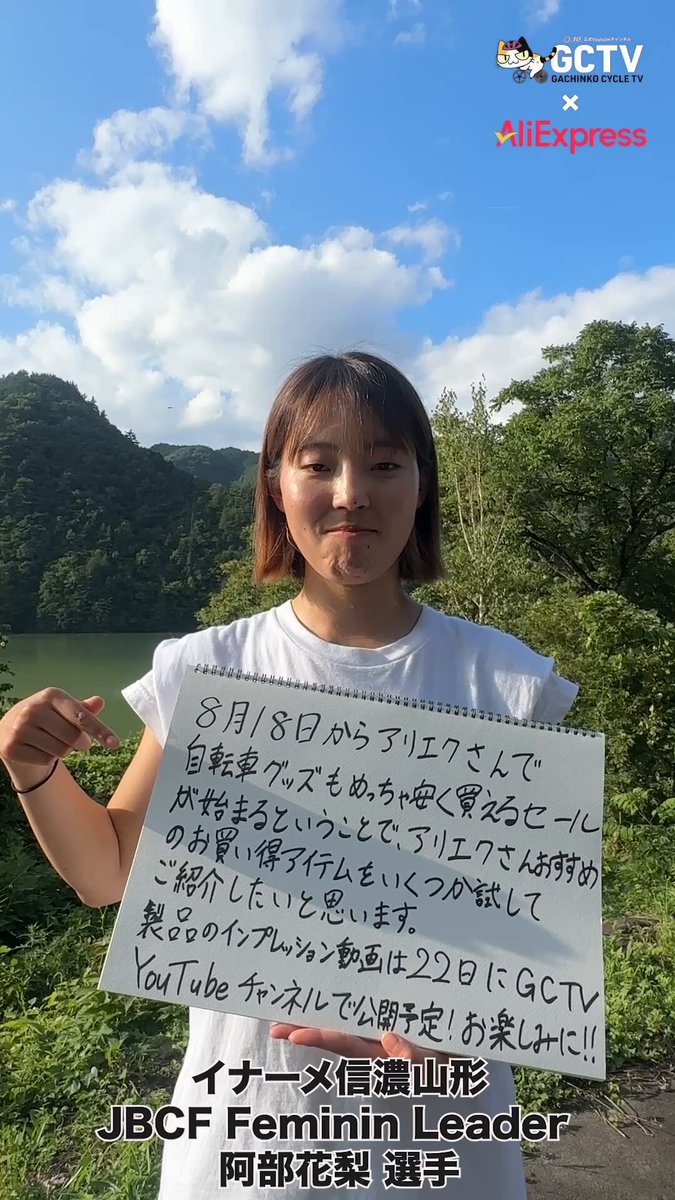 JBCF 公式Youtubeチャンネル
GCTV
GACHINKO CYCLE TV
×
AliExpress
8月18日からアリエクさんで
自転車グッズもめっちゃ安く買えるセール
が始まるということで、アリエクさんおすすめ
のお買い得アイテムをいくつか試して
ご紹介したいと思います。
製品のインプレッション動画は22日にGCTV
YouTubeチャンネルで公開予定!お楽しみに!!
イナーメ信濃山形
JBCF Feminin Leader
阿部花梨 選手